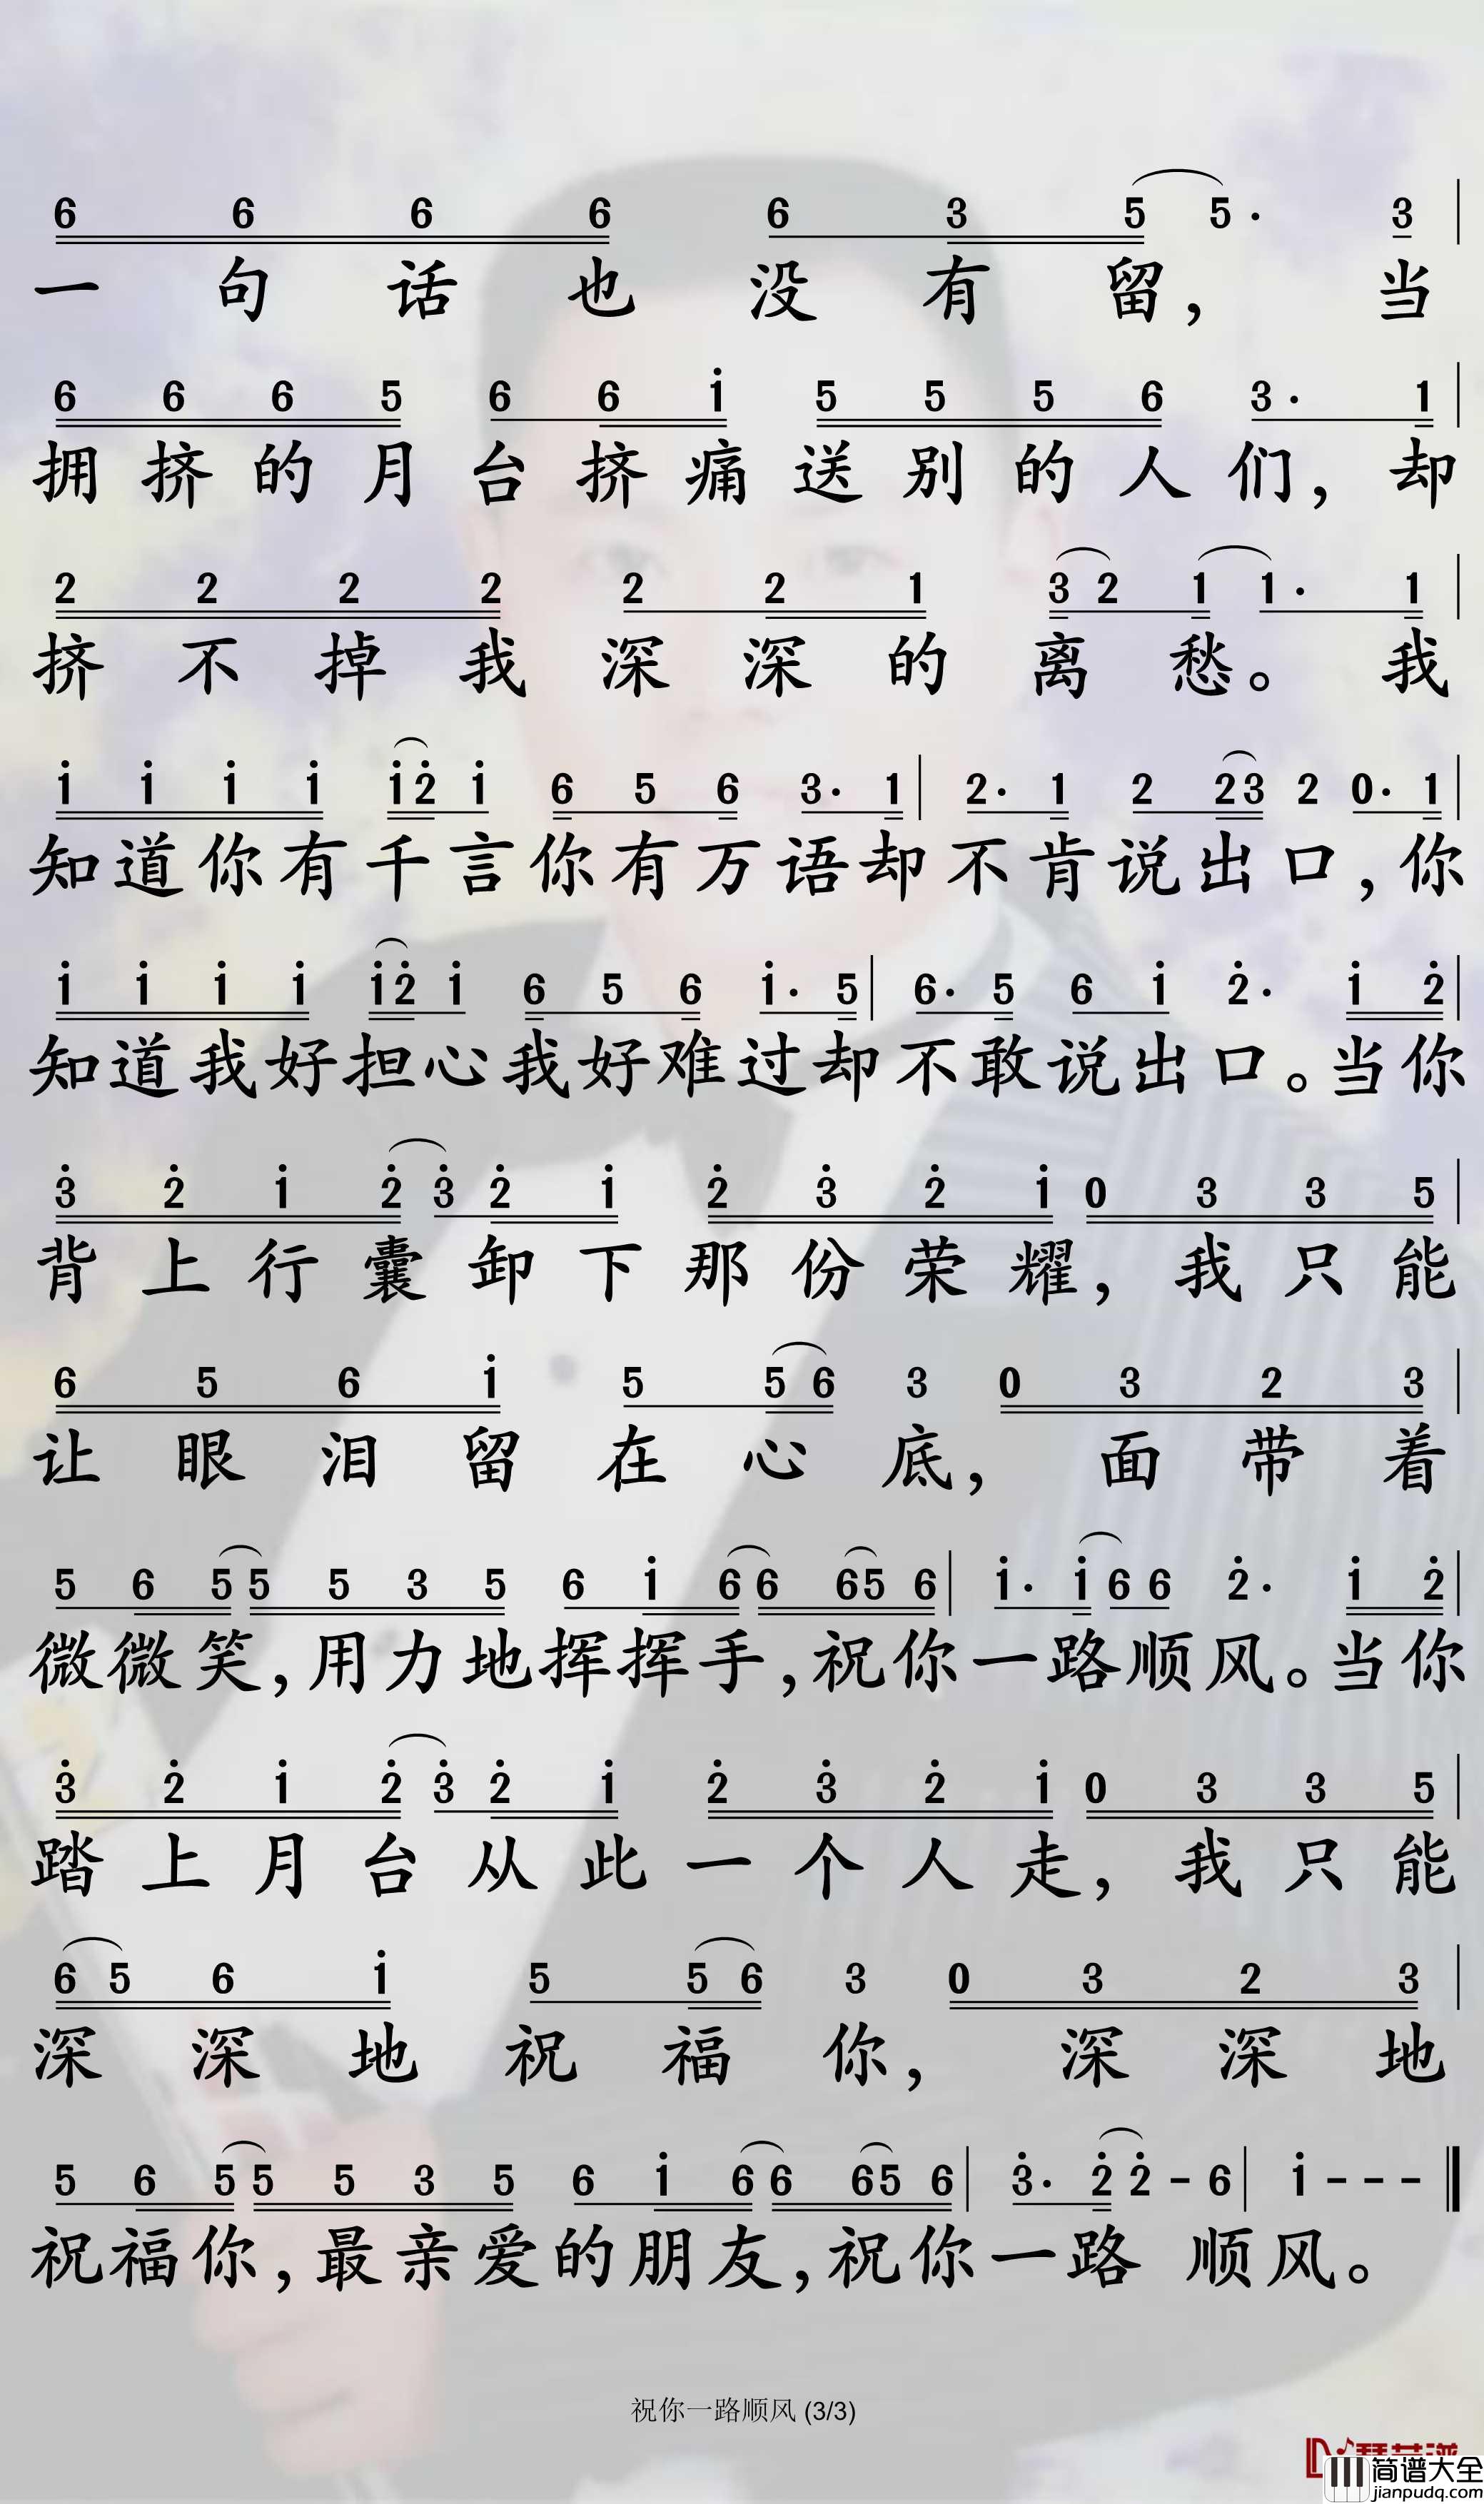 6 6 6 6 6 3 5 5· 3
一句话也没有留，当
6 6 6 5 6 6 i 5 5 5 6 3· 1
拥挤的月台挤痛送别的人们，却
2 2 2 2 2 2 1 3 2 1 1· 1
挤不掉我深深的离愁。我
i i i i i 2̇ i 6 5 6 3· 1 | 2· 1 2 2 3 2 0· 1
知道你有千言你有万语却不肯说出口，你
i i i i i 2̇ i 6 5 6 i· 5 | 6· 5 6 i 2̇· i 2̇
知道我好担心我好难过却不敢说出口。当你
3̇ 2̇ i 2̇ 3̇ 2̇ i 2̇ 3̇ 2̇ i 0 3 3 5
背上行囊卸下那份荣耀，我只能
6 5 6 i 5 5 6 3 0 3 2 3
让眼泪留在心底，面带着
5 6 5 5 5 3 5 6 i 6 6 6 5 6 | i· i 6 6 2̇· i 2̇
微微笑，用力地挥挥手，祝你一路顺风。当你
3̇ 2̇ i 2̇ 3̇ 2̇ i 2̇ 3̇ 2̇ i 0 3 3 5
踏上月台从此一个人走，我只能
6 5 6 i 5 5 6 3 0 3 2 3
深深地祝福你，深深地
5 6 5 5 5 3 5 6 i 6 6 6 5 6 | 3̇· 2̇ 2̇ - 6 | i - - -
祝福你，最亲爱的朋友，祝你一路顺风。
祝你一路顺风 (3/3)
简谱大全
jianpudq.com